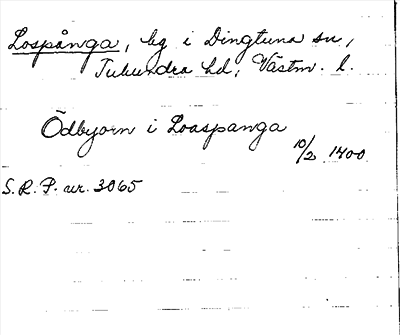 Lospånga, by i Dingtuna sn,
Tuhundra hd, Västm. l.
Ödbyorn i Loaspanga
10/2 1400
S.R.P. nr. 3065